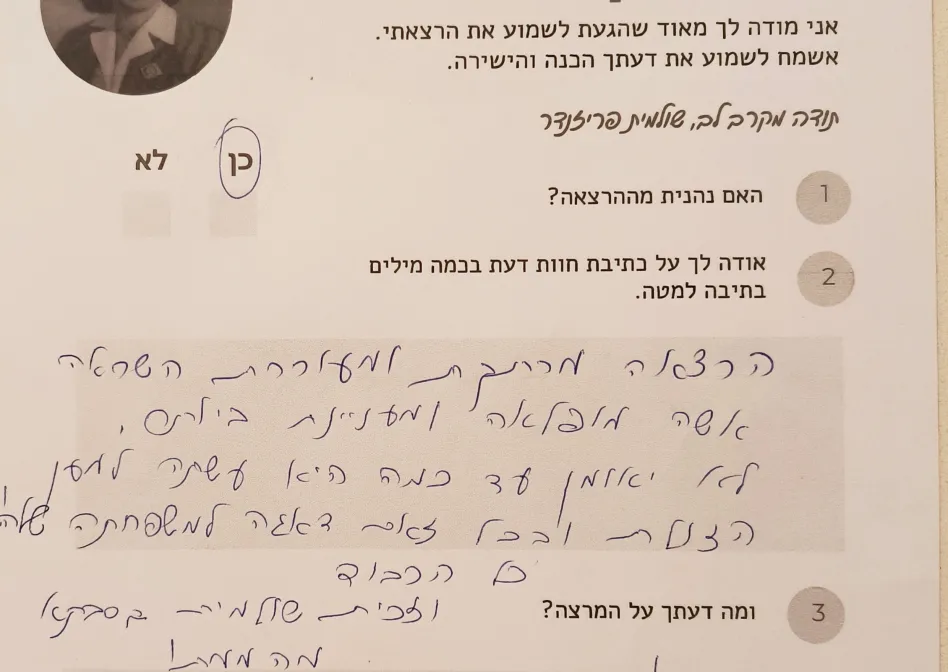 אני מודה לך מאוד שהגעת לשמוע את הרצאתי.
אשמח לשמוע את דעתך הכנה והישירה.
תודה מקרב לב, שולמית פריזנדר
כן לא
1 האם נהנית מההרצאה?
2 אודה לך על כתיבת חוות דעת בכמה מילים
בתיבה למטה.
הרצאה מרתקת ומעוררת השראה
אשה מופלאה ומעניינת ביותר,
לא יאומן עד כמה היא עשתה למען
הזולת ובכל זאת דאגה למשפחתה שלה!
כל הכבוד
3 ומה דעתך על המרצה?
שולמית